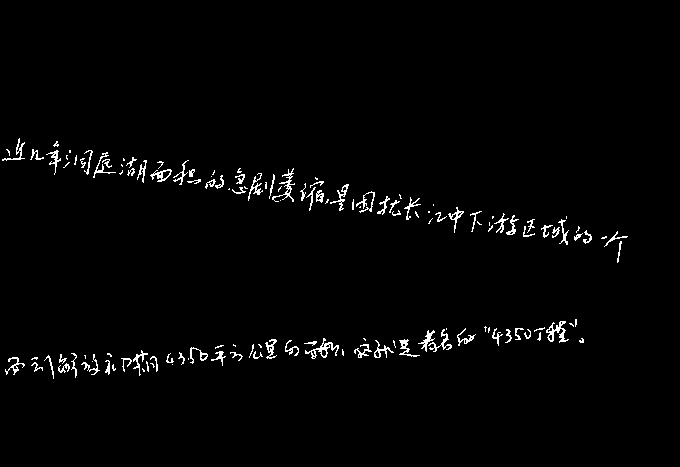 近几年洞庭湖面积的急剧萎缩是困扰长江中下游区域的一个
而到解放初期4350平方公里的面积，这就是著名的"4350工程"。